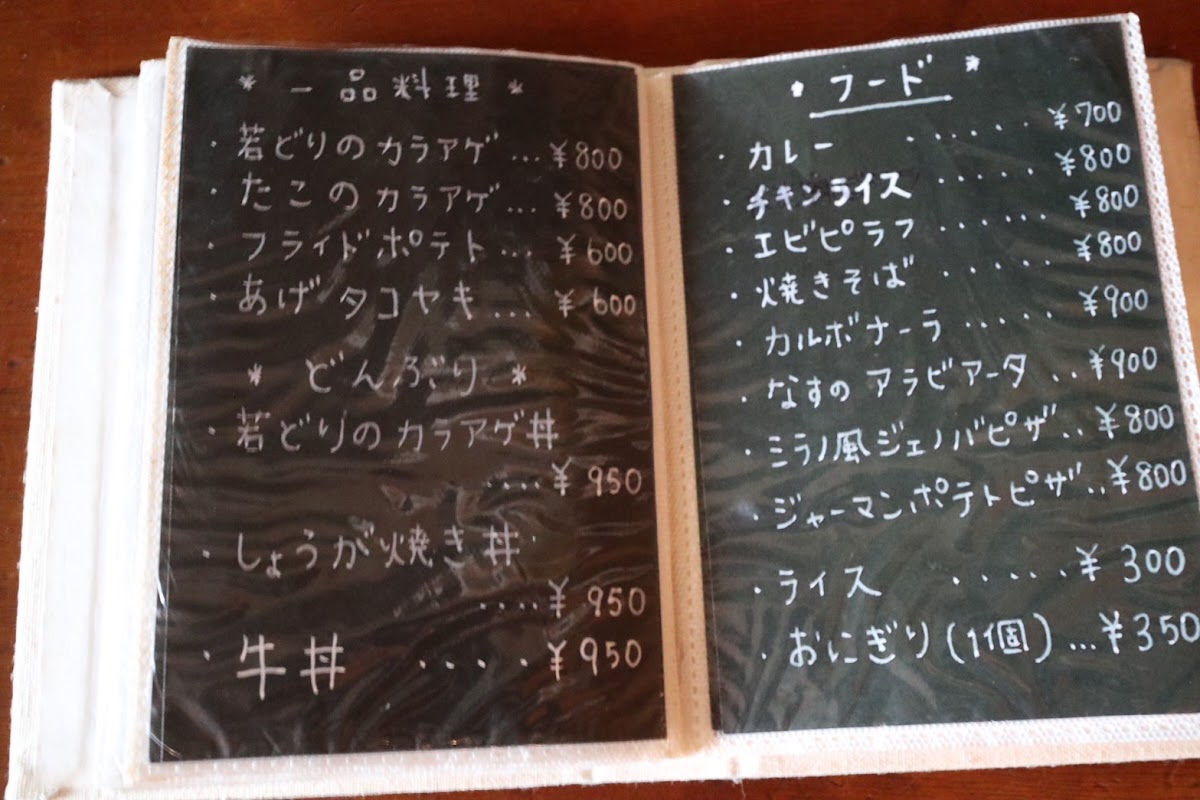 * 一品料理 *
・若どりのカラアゲ...¥800
・たこのカラアゲ...¥800
・フライドポテト...¥600
・あげタコヤキ...¥600
* どんぶり *
・若どりのカラアゲ丼
....¥950
・しょうが焼き丼
....¥950
・牛丼 ....¥950
* フード *
・カレー ......¥700
・チキンライス .....¥800
・エビピラフ ......¥800
・焼きそば ......¥800
・カルボナーラ .....¥900
・なすのアラビアータ ..¥900
・ミラノ風ジェノバピザ..¥800
・ジャーマンポテトピザ..¥800
・ライス ......¥300
・おにぎり(1個)...¥350